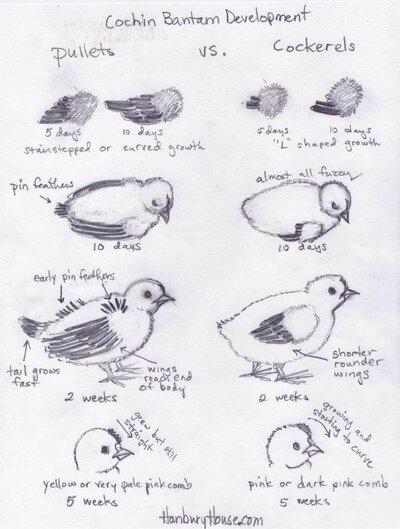 Cochin Bantam Development
pullets vs. Cockerels
5 days 10 days
stairstepped or curved growth
5 days 10 days
"L" shaped growth
pin feathers
10 days
almost all fuzzy
10 days
early pin feathers
tail grows
fast
wings
reach end
of body
2 weeks
shorter
rounder
wings
2 weeks
grew but still
straight
yellow or very pale pink comb
5 weeks
growing and
starting to curve
pink or dark pink comb
5 weeks
HanburyHouse.com